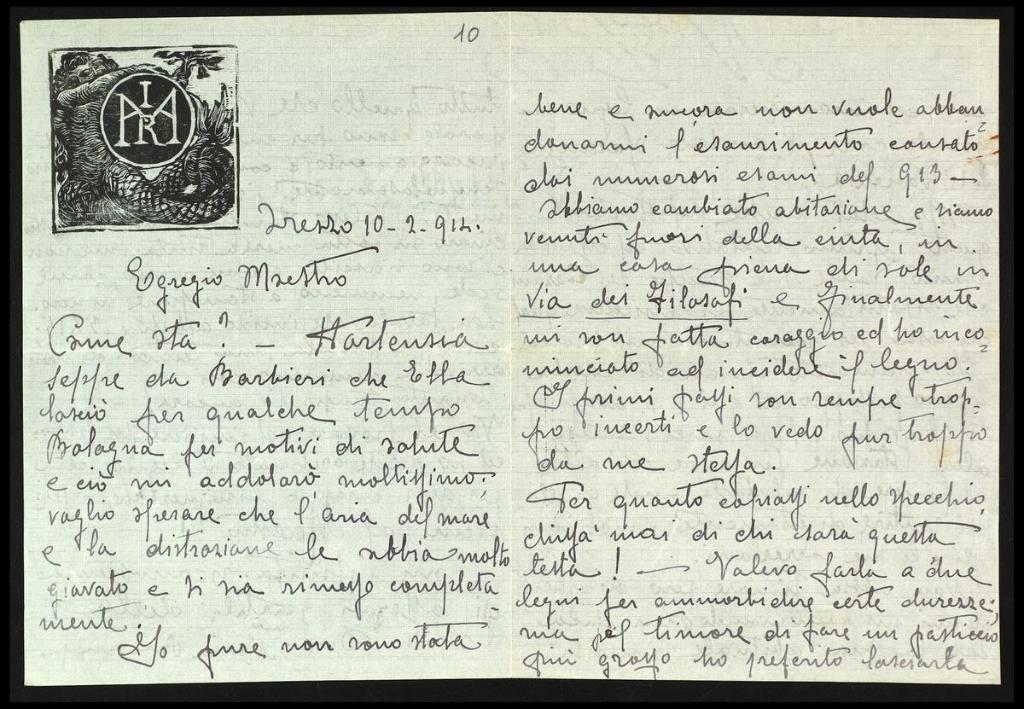 10
IMAR
Arezzo 10-2-914.
Egregio Maestro
Come sta? — Hortensia
seppe da Barbieri che Ella
lasciò per qualche tempo
Bologna per motivi di salute
e ciò mi addolorò moltissimo;
voglio sperare che l'aria del mare
e la distrazione le abbia molto
giovato e si sia rimesso completa
mente.
Io pure non sono stata
bene e ancora non vuole abban
donarmi l'esaurimento causato
dai numerosi esami del 913 —
Abbiamo cambiato abitazione e siamo
venuti fuori della cinta, in
una casa piena di sole in
Via dei Filosofi e finalmente
mi son fatta coraggio ed ho inco
minciato ad incidere il legno.
I primi passi son sempre trop-
po incerti e lo vedo pur troppo
da me stessa.
Per quanto copiassi nello specchio,
chissà mai di chi sarà questa
testa! — Volevo farla a due
legni per ammorbidire certe durezze;
ma pel timore di fare un pasticcio
più grosso ho preferito lasciarla